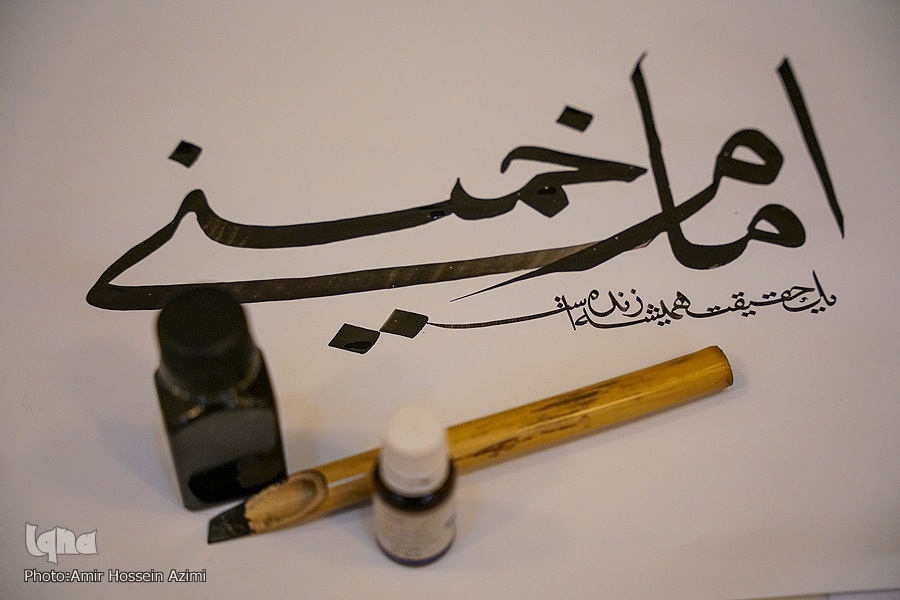 امام خمینی
یک حقیقت همیشه زنده است
Iqna
Photo:Amir Hossein Azimi